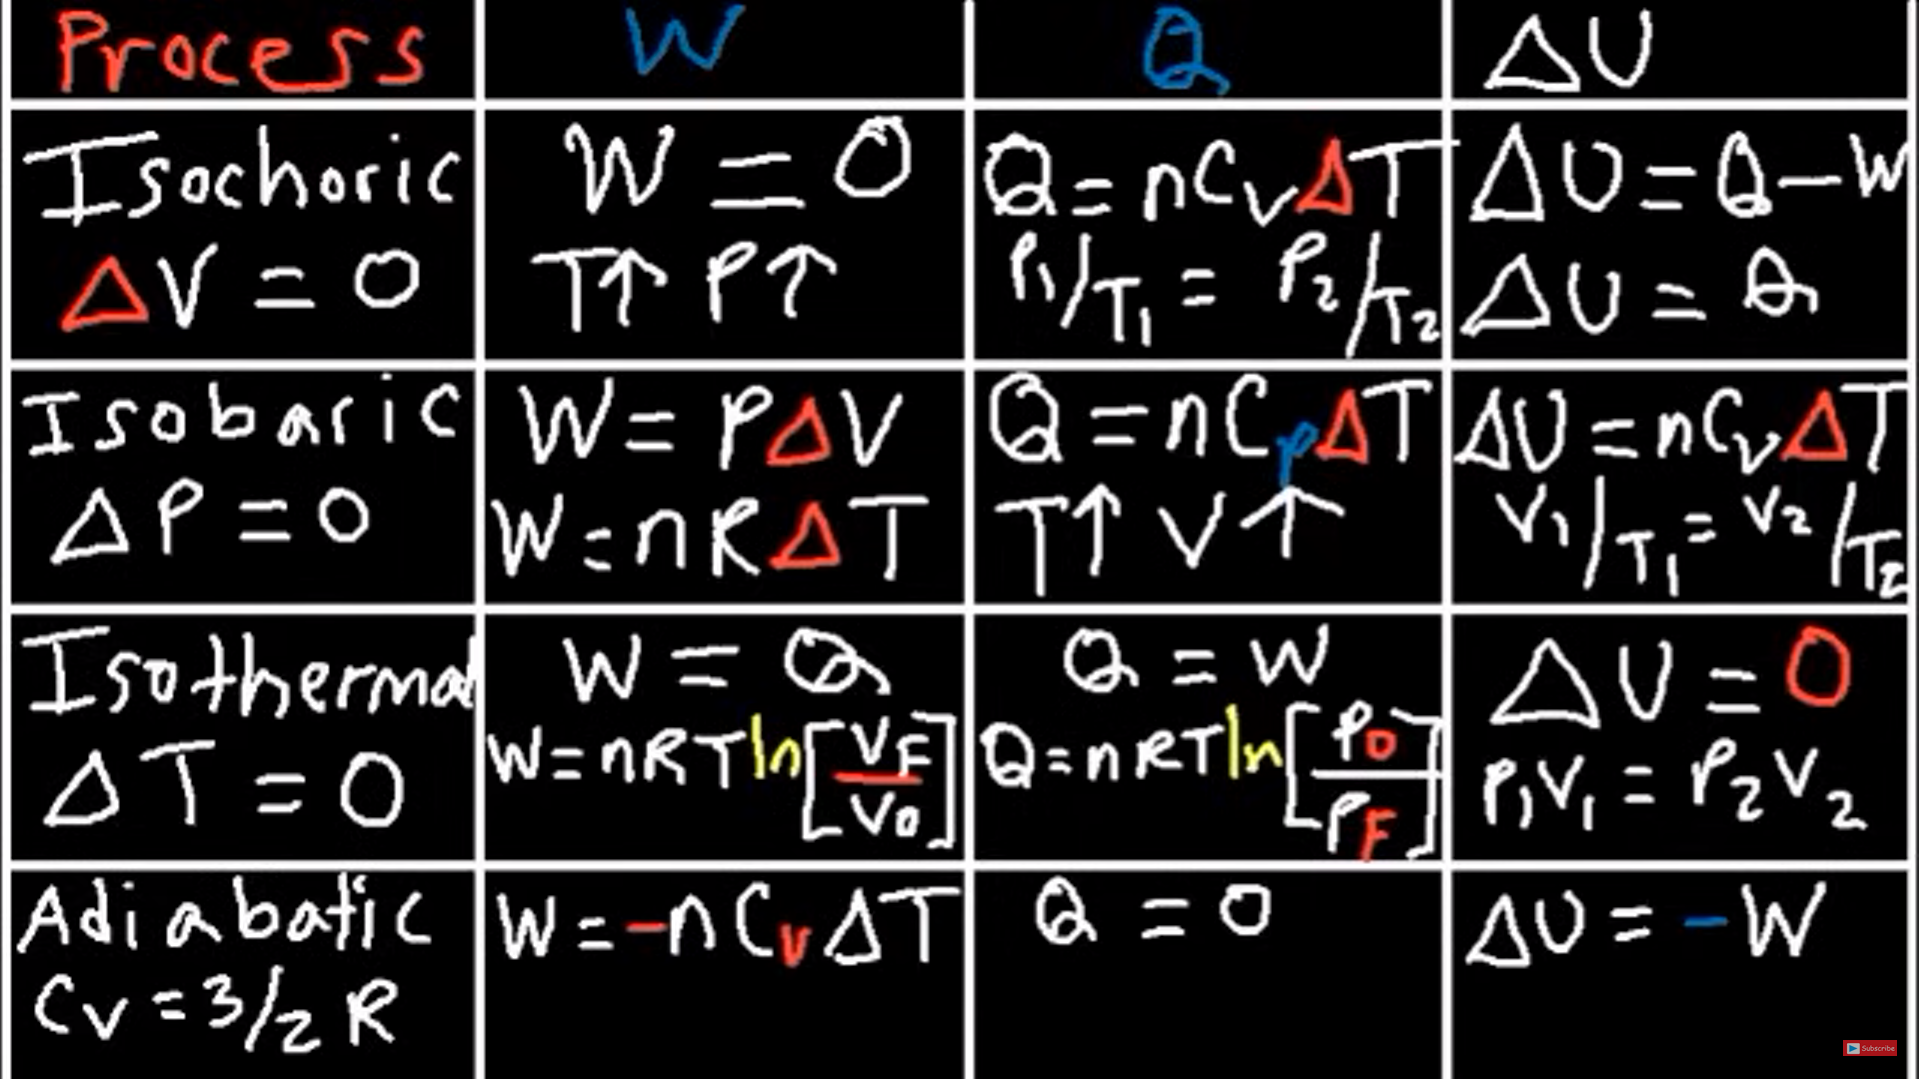 Process W Q ΔU
Isochoric
ΔV = 0
W = 0
T↑ P↑
Q = nCvΔT
P1/T1 = P2/T2
ΔU = Q - W
ΔU = Q
Isobaric
ΔP = 0
W = PΔV
W = nRΔT
Q = nCpΔT
T↑ V↑
ΔU = nCvΔT
V1/T1 = V2/T2
Isothermal
ΔT = 0
W = Q
W = nRT ln[VF/V0]
Q = W
Q = nRT ln[P0/PF]
ΔU = 0
P1V1 = P2V2
Adiabatic
Cv = 3/2 R
W = -nCvΔT
Q = 0
ΔU = -W
Subscribe